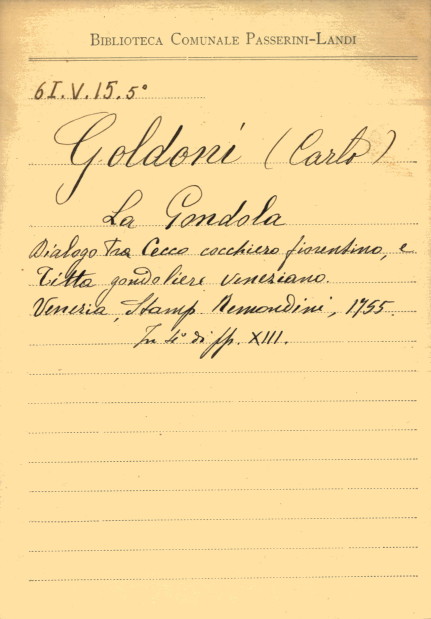 BIBLIOTECA COMUNALE PASSERINI-LANDI
6I.V.15.5°
Goldoni (Carlo)
La Gondola
Dialogo tra Cecco cocchiero fiorentino, e
Titta gondoliere veneziano.
Venezia, Stamp Remondini, 1755.
In 4° di pp. XIII.